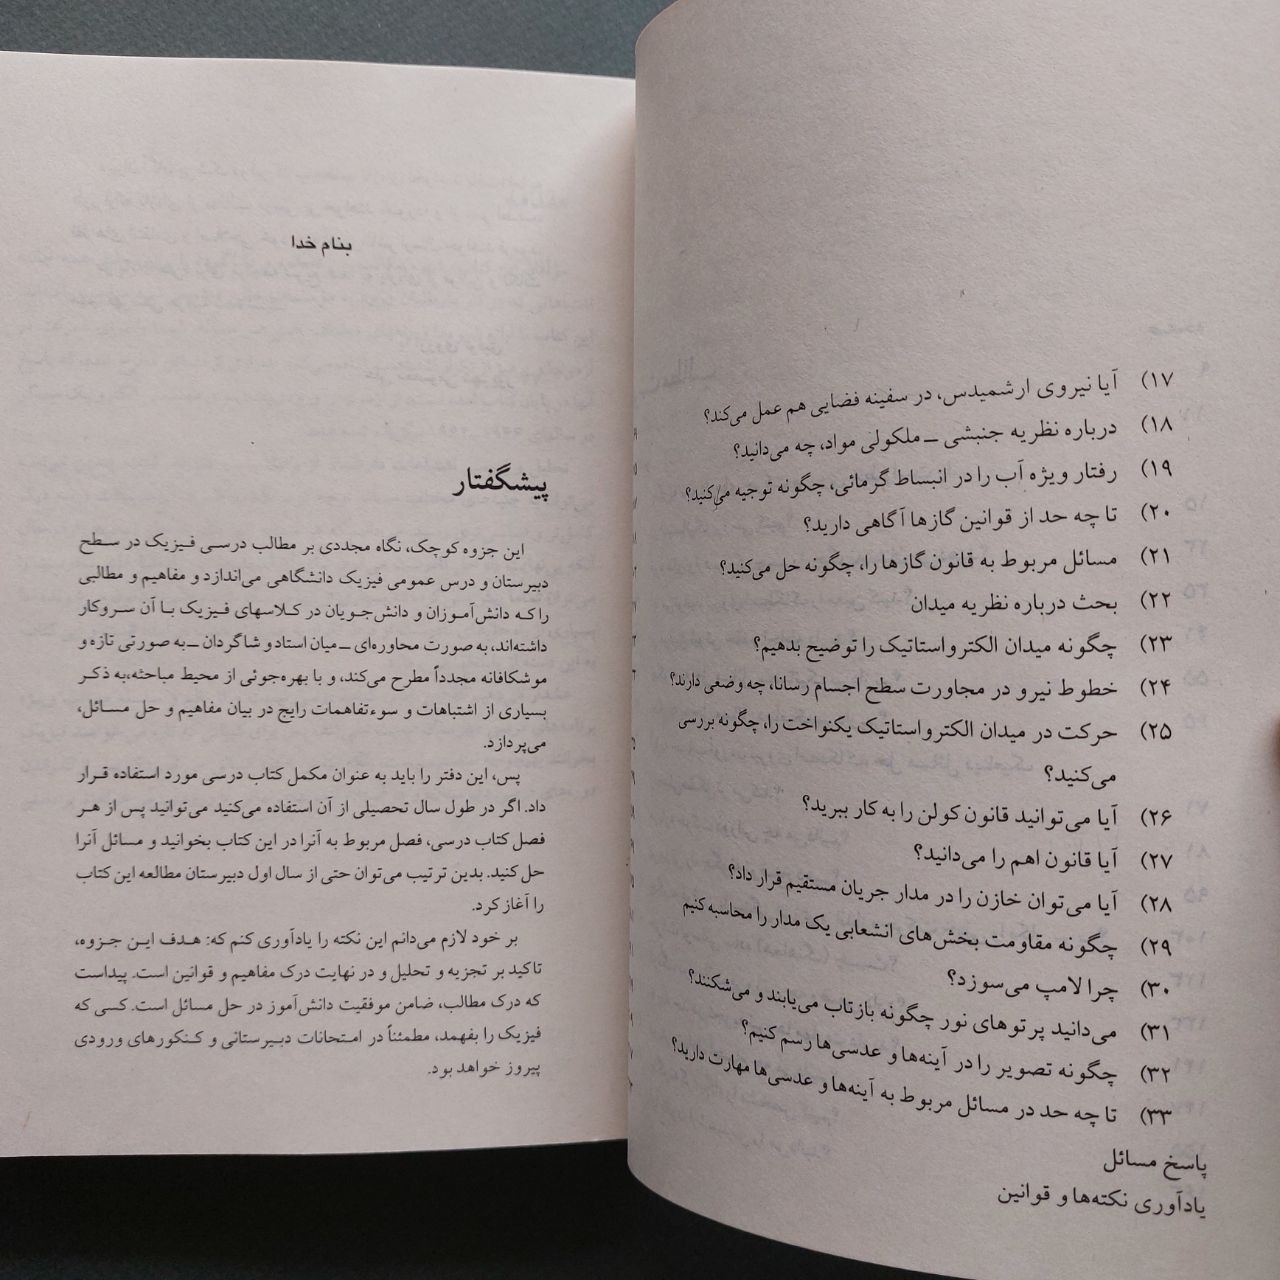 ۱۷) آیا نیروی ارشمیدس، در سفینه فضایی هم عمل می‌کند؟
۱۸) درباره نظریه جنبشی ــ ملکولی مواد، چه می‌دانید؟
۱۹) رفتار ویژه آب را در انبساط گرمائی، چگونه توجیه می‌کنید؟
۲۰) تا چه حد از قوانین گازها آگاهی دارید؟
۲۱) مسائل مربوط به قانون گازها را، چگونه حل می‌کنید؟
۲۲) بحث درباره نظریه میدان
۲۳) چگونه میدان الکترواستاتیک را توضیح بدهیم؟
۲۴) خطوط نیرو در مجاورت سطح اجسام رسانا، چه وضعی دارند؟
۲۵) حرکت در میدان الکترواستاتیک یکنواخت را، چگونه بررسی
می‌کنید؟
۲۶) آیا می‌توانید قانون کولن را به کار ببرید؟
۲۷) آیا قانون اهم را می‌دانید؟
۲۸) آیا می‌توان خازن را در مدار جریان مستقیم قرار داد؟
۲۹) چگونه مقاومت بخش‌های انشعابی یک مدار را محاسبه کنیم
۳۰) چرا لامپ می‌سوزد؟
۳۱) می‌دانید پرتوهای نور چگونه بازتاب می‌یابند و می‌شکنند؟
۳۲) چگونه تصویر را در آینه‌ها و عدسی‌ها رسم کنیم؟
۳۳) تا چه حد در مسائل مربوط به آینه‌ها و عدسی‌ها مهارت دارید؟
پاسخ مسائل
یادآوری نکته‌ها و قوانین
بنام خدا
پیشگفتار
این جزوه کوچک، نگاه مجددی بر مطالب درسی فیزیک در سطح
دبیرستان و درس عمومی فیزیک دانشگاهی می‌اندازد و مفاهیم و مطالبی
را که دانش‌آموزان و دانش‌جویان در کلاسهای فیزیک با آن سروکار
داشته‌اند، به صورت محاوره‌ای ــ میان استاد و شاگردان ــ به صورتی تازه و
موشکافانه مجدداً مطرح می‌کند، و با بهره‌جوئی از محیط مباحثه،به ذکر
بسیاری از اشتباهات و سوءتفاهمات رایج در بیان مفاهیم و حل مسائل،
می‌پردازد.
پس، این دفتر را باید به عنوان مکمل کتاب درسی مورد استفاده قرار
داد. اگر در طول سال تحصیلی از آن استفاده می‌کنید می‌توانید پس از هر
فصل کتاب درسی، فصل مربوط به آنرا در این کتاب بخوانید و مسائل آنرا
حل کنید. بدین ترتیب می‌توان حتی از سال اول دبیرستان مطالعه این کتاب
را آغاز کرد.
بر خود لازم می‌دانم این نکته را یادآوری کنم که: هدف این جزوه،
تاکید بر تجزیه و تحلیل و در نهایت درک مفاهیم و قوانین است. پیداست
که درک مطالب، ضامن موفقیت دانش‌آموز در حل مسائل است. کسی که
فیزیک را بفهمد، مطمئناً در امتحانات دبیرستانی و کنکورهای ورودی
پیروز خواهد بود.